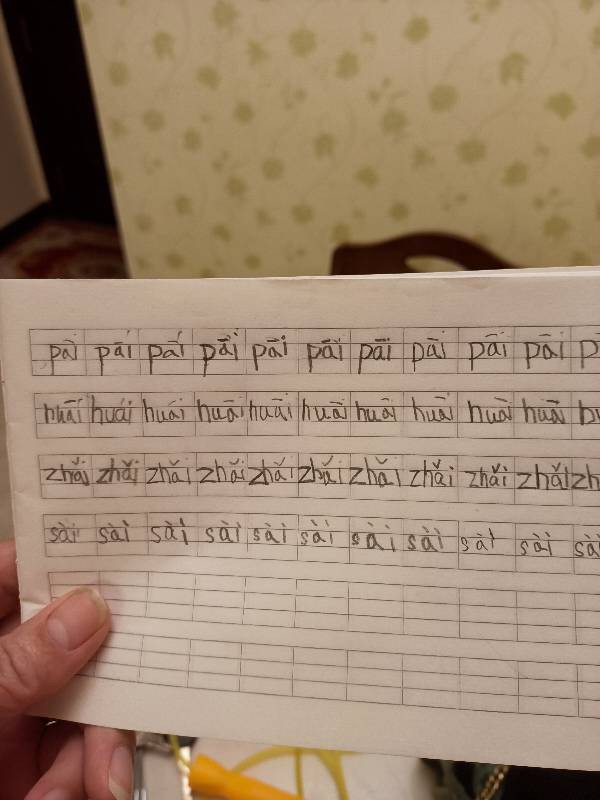 pāi pāi pāi pāi pāi pāi pāi pāi pāi pāi
huái huái huái huāi huāi huāi huāi huāi huāi huāi
zhǎi zhǎi zhǎi zhǎi zhǎi zhǎi zhǎi zhǎi zhǎi zhǎi zh
sài sài sài sài sài sài sài sài sài sài sài